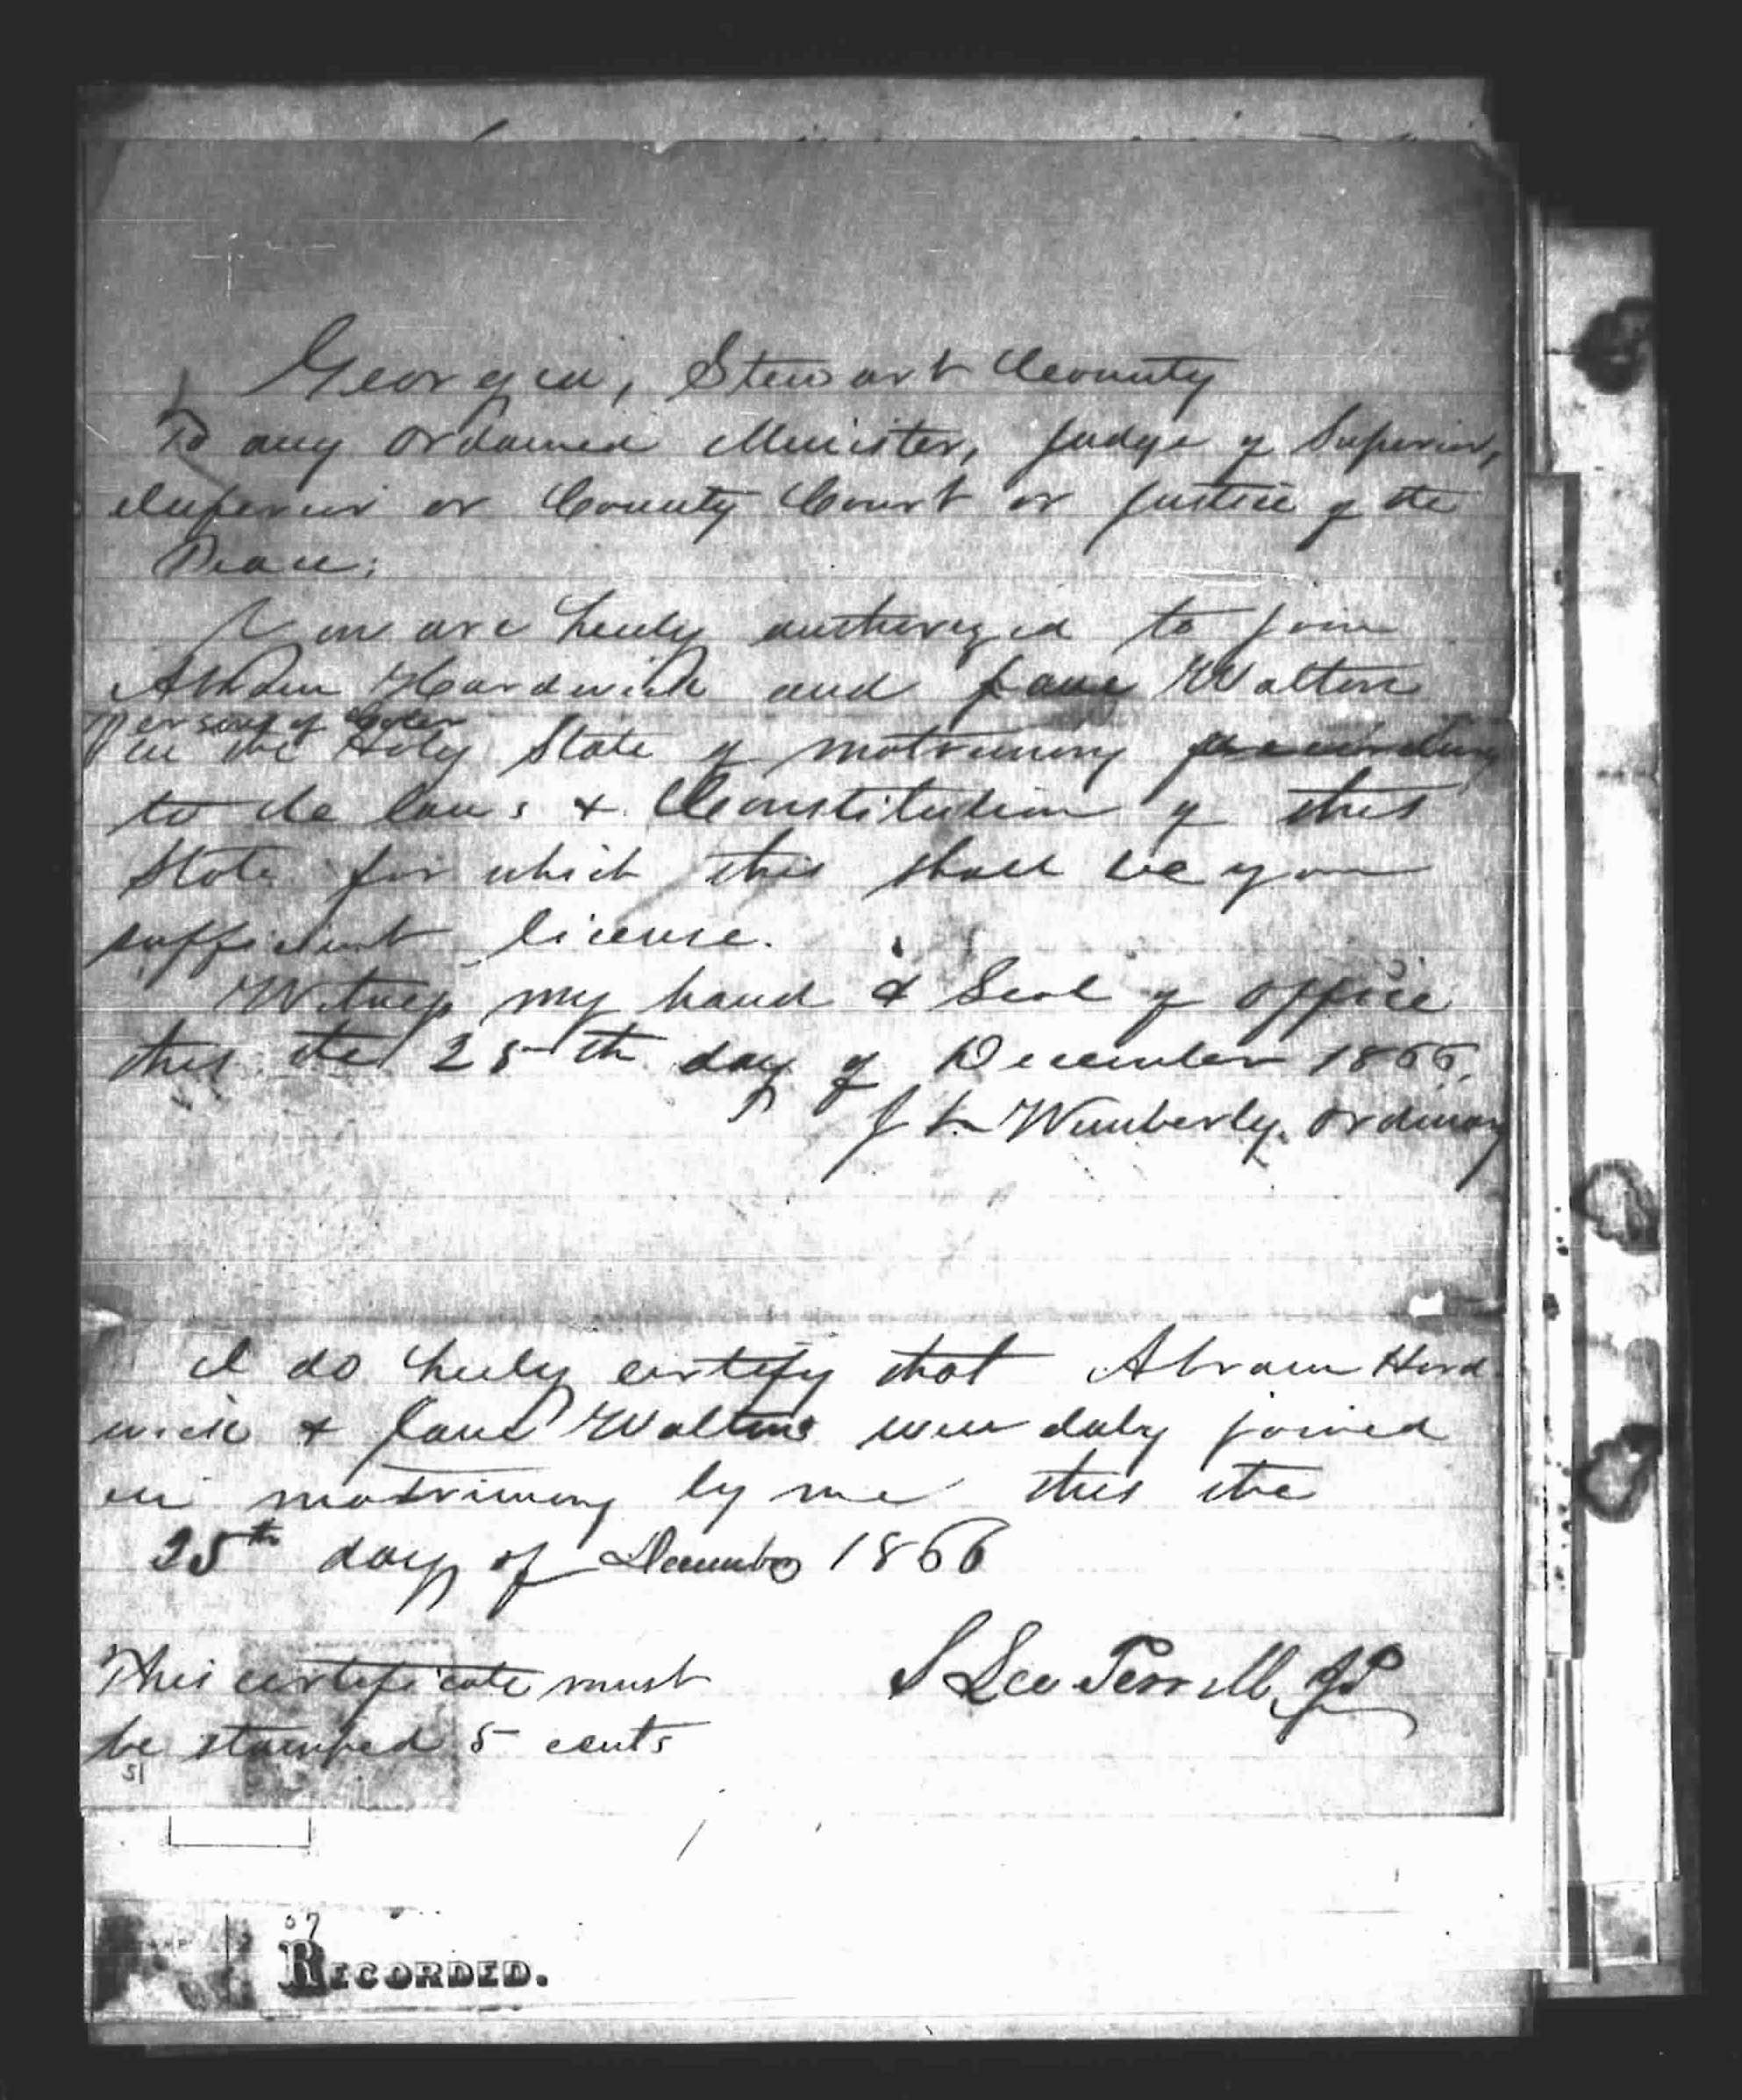 Georgia, Stewart County
To any ordained Minister, Judge of Superior,
Inferior or County Court or Justice of the
Peace:
You are hereby authorized to join
Abram Hardwick and Jane Walton
persons of Color
in the Holy State of matrimony according
to the laws & Constitution of this
State for which this shall be your
sufficient license.
Witness my hand & Seal of office
this the 25th day of December 1866.
J L Wimberly. Ordinary
I do hereby certify that Abram Hard
wick & Jane Walton were duly joined
in matrimony by me this the
25th day of December 1866
S Lee Terrell JP
This certificate must
be stamped 5 cents
51
07
RECORDED.